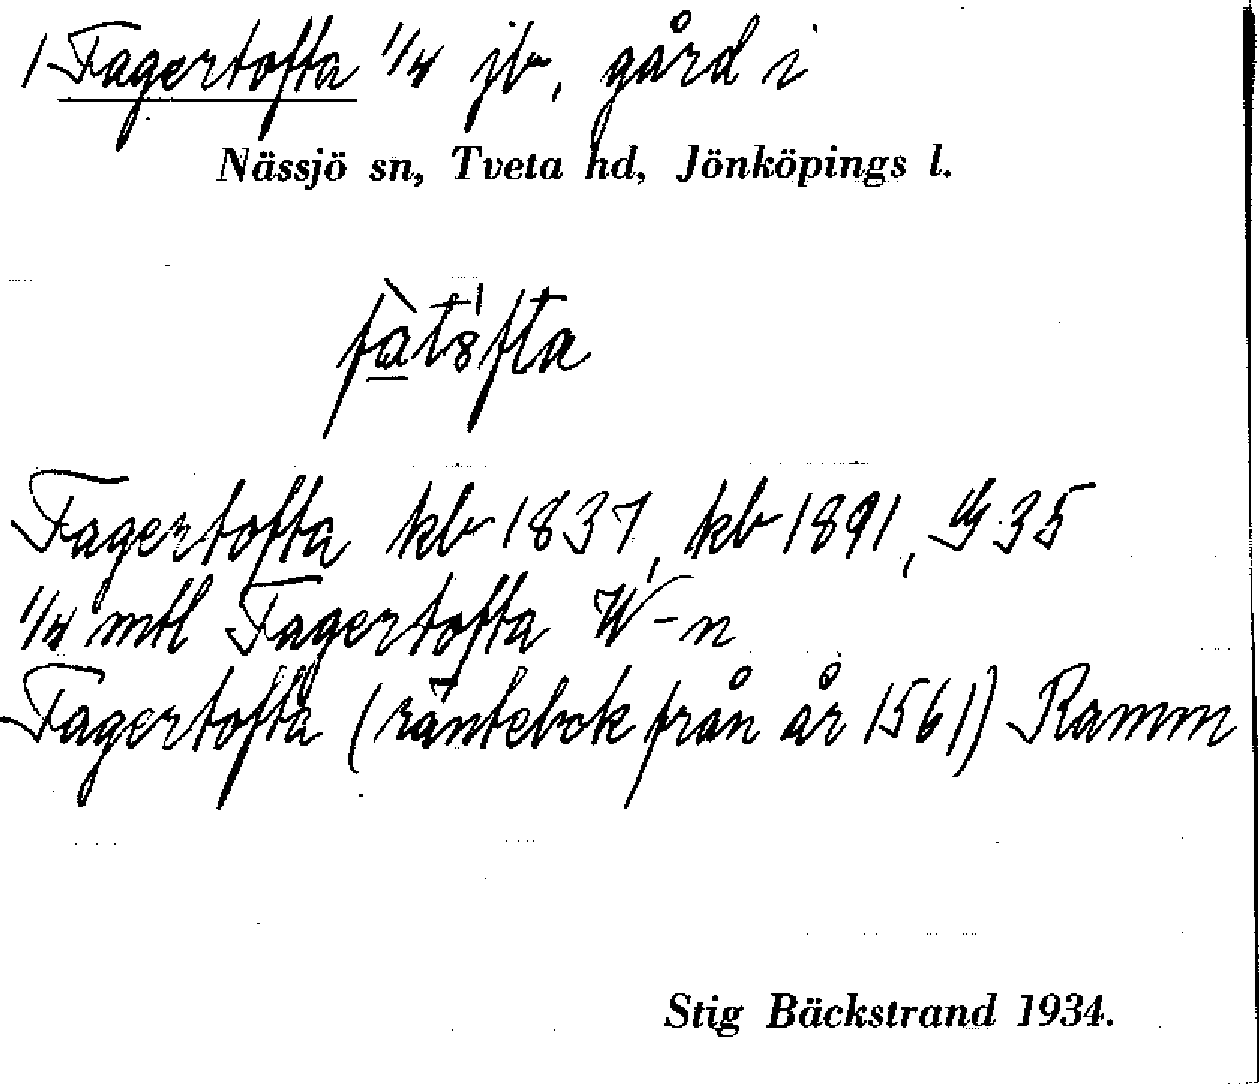 1 Fagertofta 1/4 jb, gård i
Nässjö sn, Tveta hd, Jönköpings l.
Fagertofta kb 1837, kb 1891, G 35
1/4 mtl Fagertofta W-n
Fagertofta (räntebok från år 1561) Ramm
Stig Bäckstrand 1934.